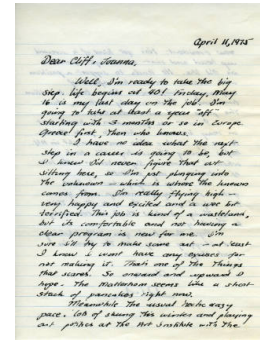 April 11, 1975
Dear Cliff & Joanna,
Well, I'm ready to take the big
step. Life begins at 40! Friday, May
16 is my last day on the job. I'm
going to take at least a year off
starting with 3 months or so in Europe
Greece first, then who knows.
I have no idea what the next
step in a career is going to be, but
I knew I'd never figure that out
sitting here, so I'm just plunging into
the unknown - which is where the
comes from. I'm really flying high -
very happy and excited and a wee bit
terrified. This job is kind of a wasteland,
but it's comfortable and not having a
clear program is new for me. I'm
sure I'll try to make some art - at least
I know I won't have any excuses for
not making it. That's one of the things
that scares. So onward and upward I
hope. The Matterhorn seems like a short
stack of pancakes right now.
Meanwhile the usual hectic easy
pace. Lots of skiing this winter and playing
out at the Art Institute with the